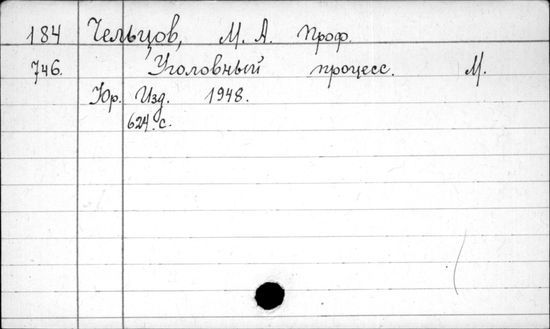 184 Чельцов, М. А. Проф.
746. Уголовный процесс. М.
Юр. Изд. 1948.
624. с.